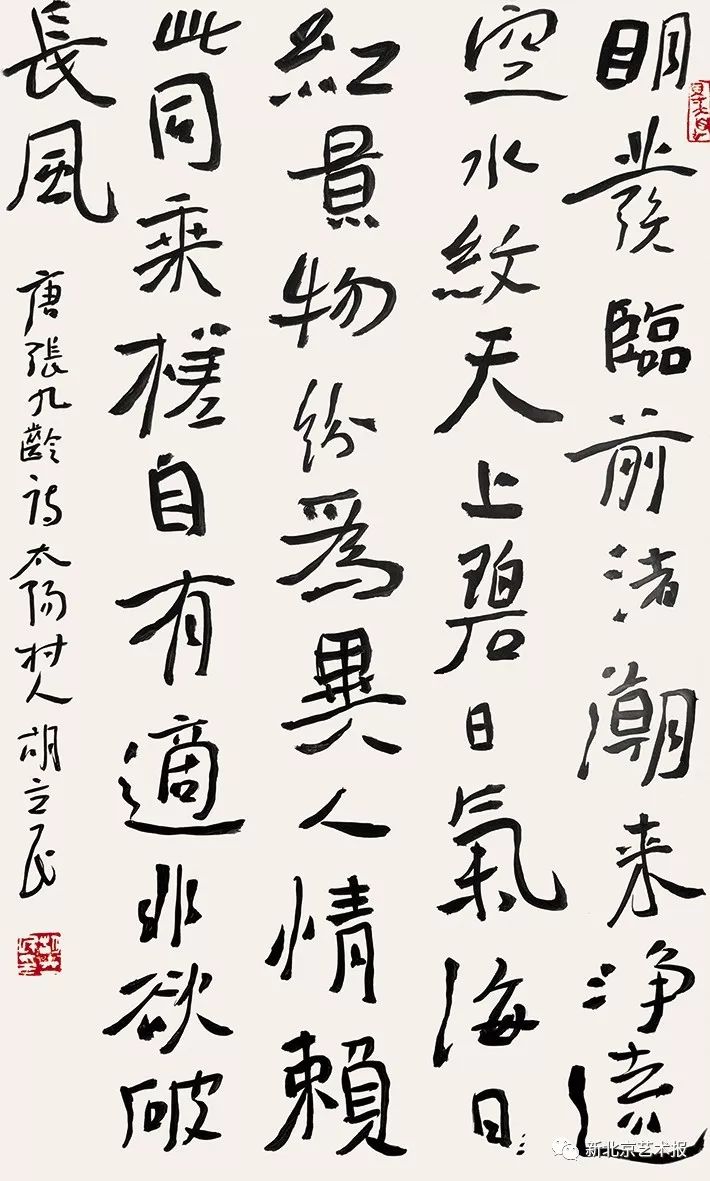 明發臨前渚潮来净遠
空水紋天上碧日氣海日
紅景物紛為異人情賴
此同乘槎自有適非欲破
長風
唐張九齡詩太陽村人胡立民
新北京艺术报